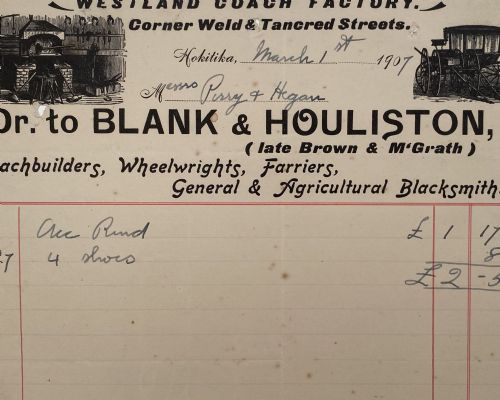 WESTLAND COACH FACTORY.
Corner Weld & Tancred Streets.
Hokitika, March 1st 1907
Messrs Perry & Hegan
Dr. to BLANK & HOULISTON,
(late Brown & McGrath)
achbuilders, Wheelwrights, Farriers,
General & Agricultural Blacksmith
Acc Rend £ 1 17
7 4 shoes 8
£ 2 - 5